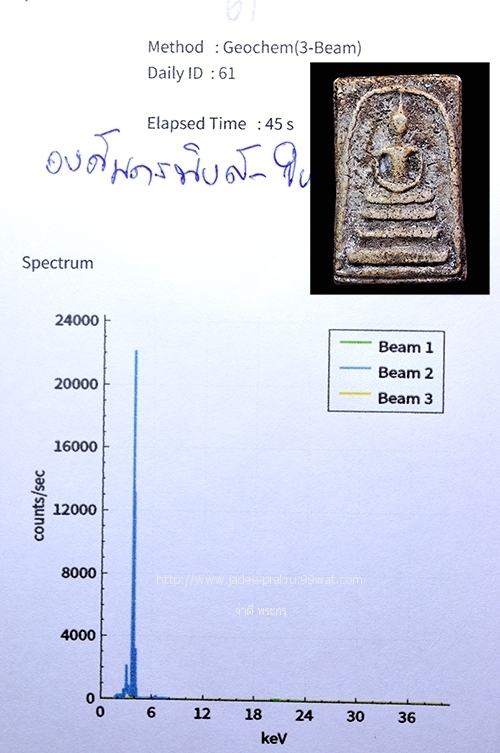 61
Method : Geochem(3-Beam)
Daily ID : 61
Elapsed Time : 45 s
Spectrum
24000
20000
16000
12000
8000
4000
0
counts/sec
Beam 1
Beam 2
Beam 3
0 6 12 18 24 30 36
keV
http://www.jadee-prakru.99wat.com
จ่าดี พระกรุ